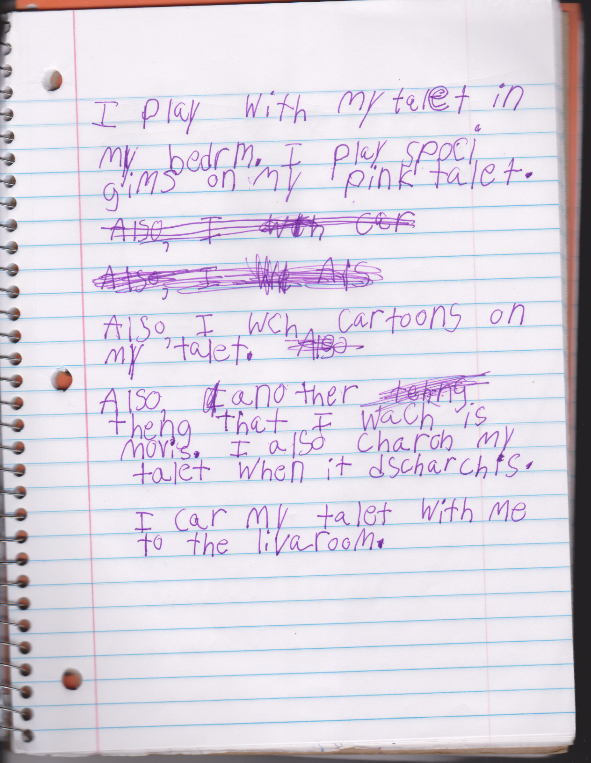 I play with my talet in
my bedrm. I play spoci
gims on my pink talet.
Also, I with car
Also, I Ais
Also, I wch cartoons on
my talet. Also
Also, another tehng
theng that I wach is
movis. I also charch my
talet when it dscharchis.
I car my talet with me
to the livaroom.